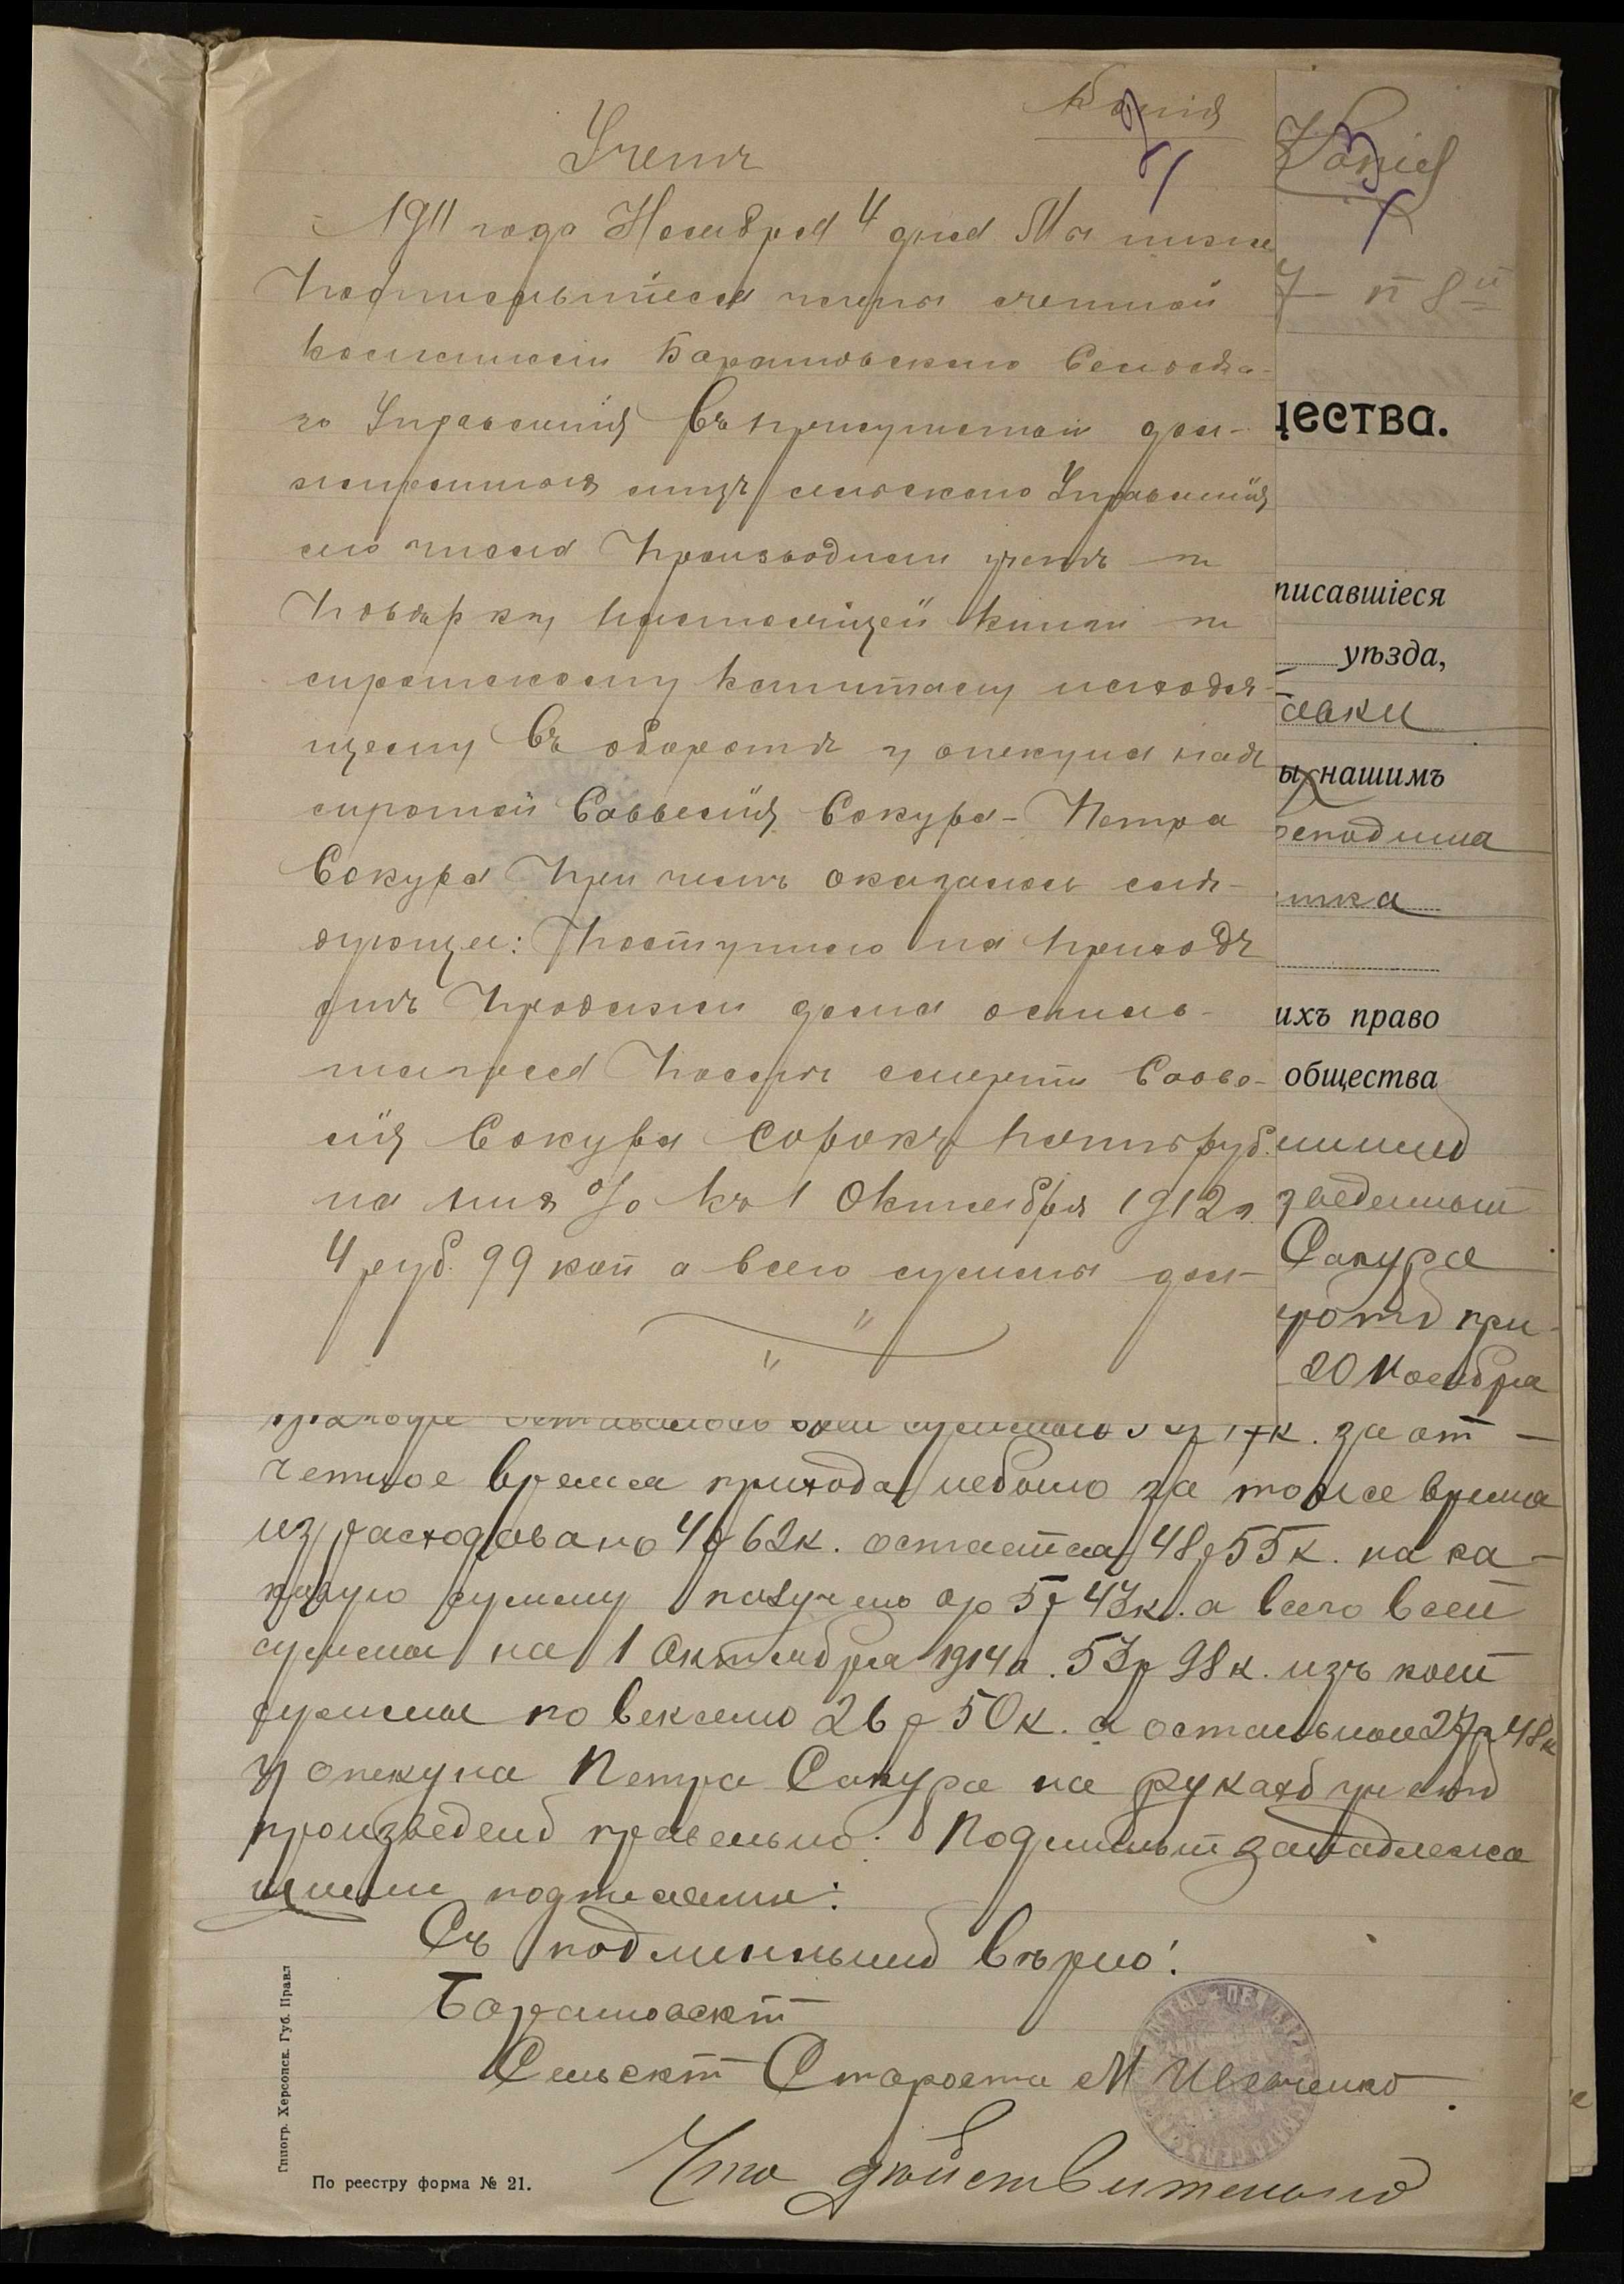 Копія
Учетъ
1911 года Ноября 4 дня Мы ниже
подписавшіеся члены счетной
коммисіи Баратовскаго Сельска-
го Управленія въ присутствіи дол-
жностныхъ лицъ сельскаго Управленія
сего числа производили учетъ и
повѣрку настоящей книги и
сиротскому капиталу находя-
щему въ оборотѣ у опекуна надъ
сиротой Савелія Сокура - Петра
Сокура при чемъ оказалось слѣ-
дующее: поступило на приходъ
отъ продажи дома оставь-
шагося послѣ смерти Саве-
лія Сокура сорокъ пять руб.
на нихъ % къ 1 Октября 1912 г.
4 руб. 99 коп а всего суммы дол-
Копія
7 п 8й
щества.
писавшіеся
уѣзда,
ы нашимъ
ихъ право
общества
зведенный
Сокура
при-
20 Ноября
оставалось всей суммы к. за от-
четное время прихода небыло за тоже время
израсходовано 4р 62к. остается 48р 55к. на ка-
ковую сумму получено % 5р 43к. а всего всей
суммы на 1 Октября 1914 г. 53р 98к. изъ коей
суммы по векселю 26р 50к. а остальные 27р 48к
у опекуна Петра Сокура на рукахъ учетъ
произведенъ правельно. Подлинный за надлежа
щими подписами:
Съ подлиннымъ вѣрно:
Баратовскій
Сельскій Староста М Ивченко
Что дѣйствительно
Типогр. Херсонск. Губ. Правл
По реестру форма № 21.